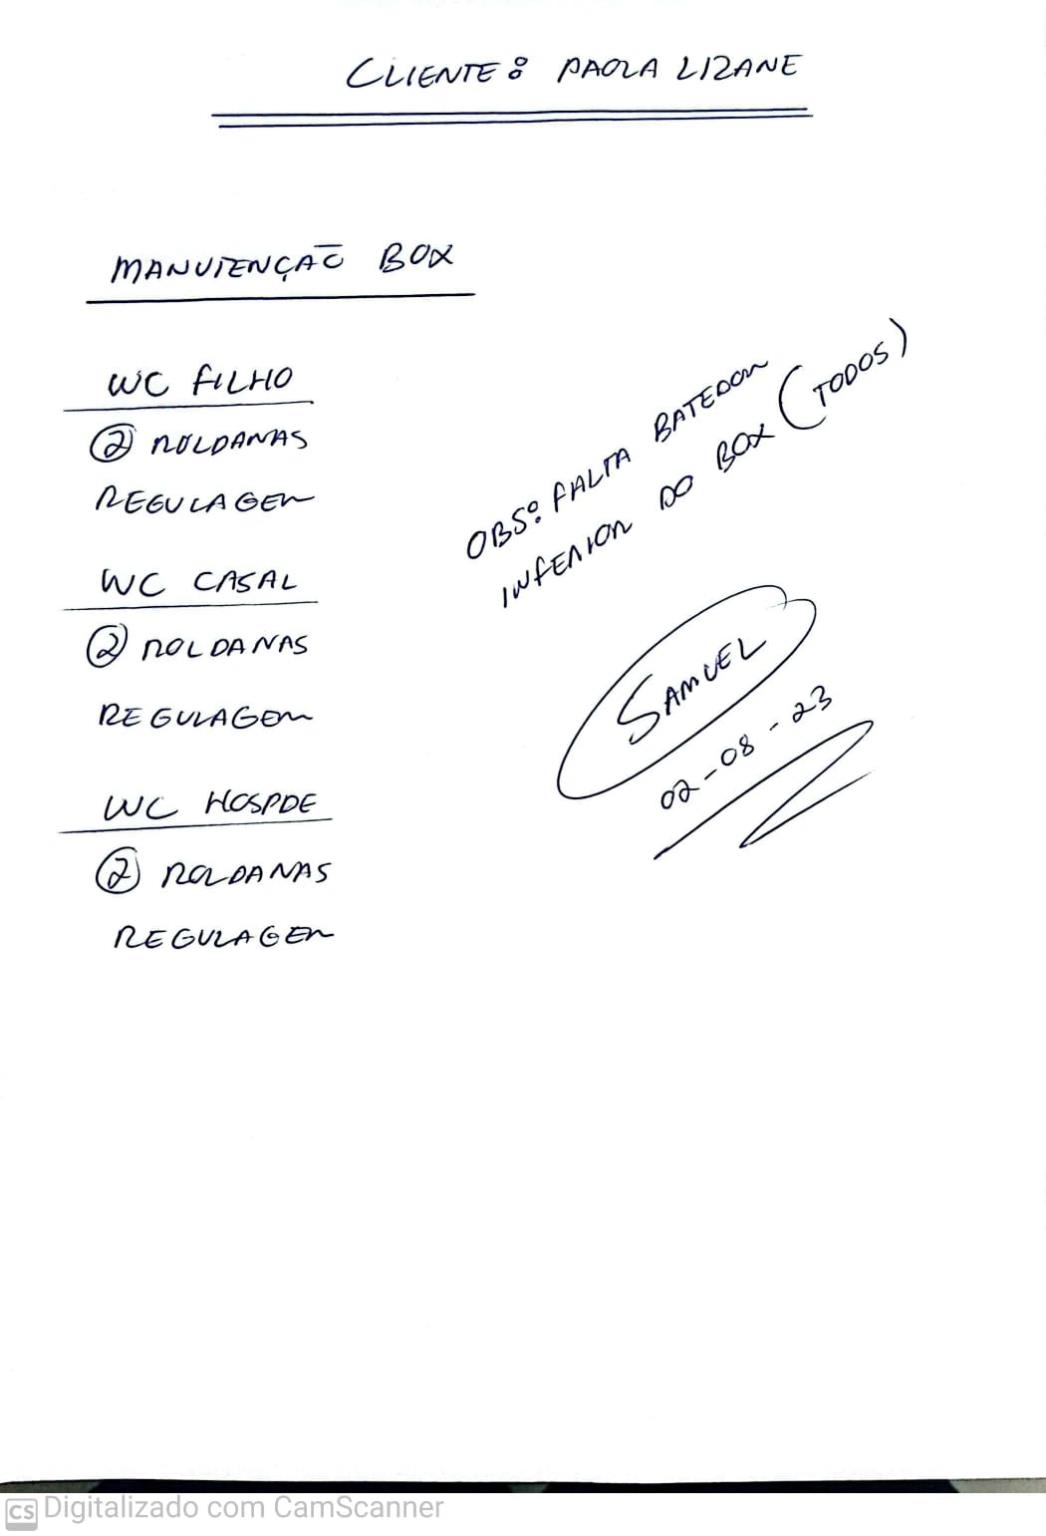 CLIENTE: PAOLA LIZANE
MANUTENÇÃO BOX
WC FILHO
② ROLDANAS
REGULAGEM
WC CASAL
② ROLDANAS
REGULAGEM
WC HOSPDE
② ROLDANAS
REGULAGEM
OBS: FALTA BATEDOR
INFERIOR DO BOX (TODOS)
SAMUEL
02-08-23
CS Digitalizado com CamScanner